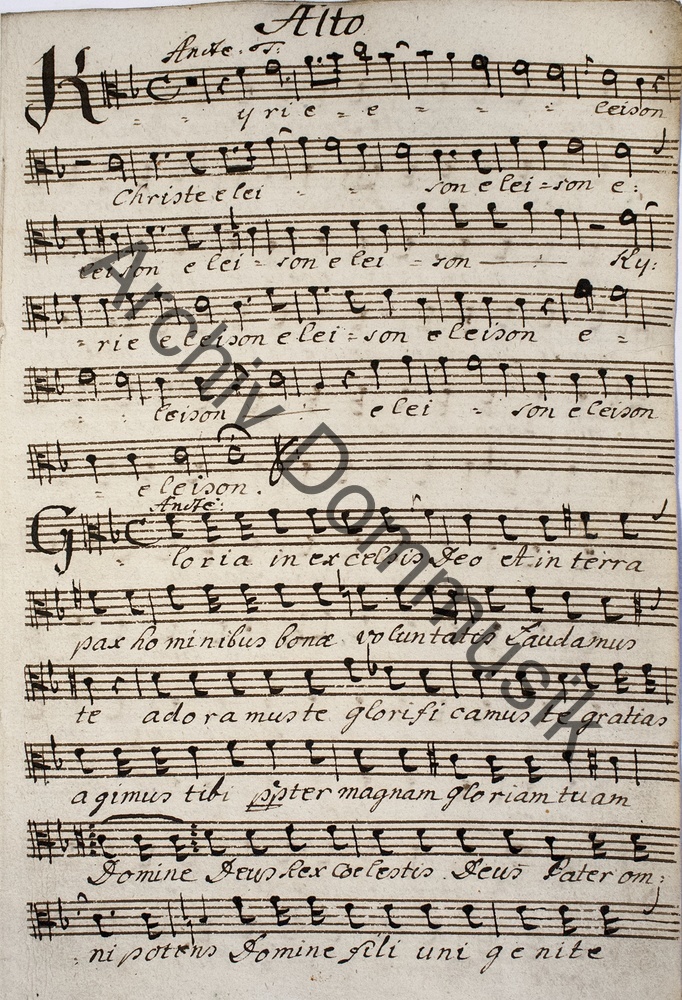 Alto
Andte. T:
Kyrie = e = = = leison
Christe elei - - son elei = son e:
leison elei = son elei = son Ky:
= rie eleison elei = son eleison e =
leison elei = son eleison
= eleison.
Andte:
Gloria in excelsis Deo et in terra
pax hominibus bonæ voluntatis Laudamus
te adoramus te glorifi camus te gratias
agimus tibi ppter magnam gloriam tuam
Domine Deus Rex Cœlestis Deus Pater om:
nipotens Domine fili uni genite
Archiv Dommusik